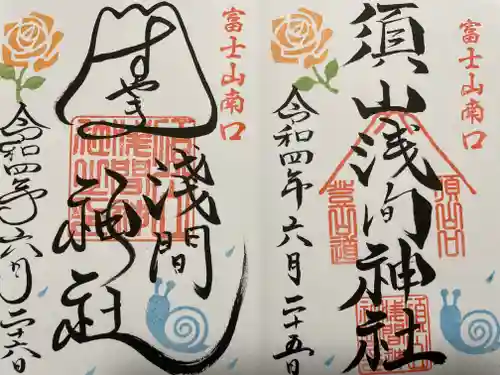 富士山南口
須山浅间神社
令和四年六月二十五日
須山口
登山道
富士山南口
すやま
浅間
神社
令和四年六月二十六日